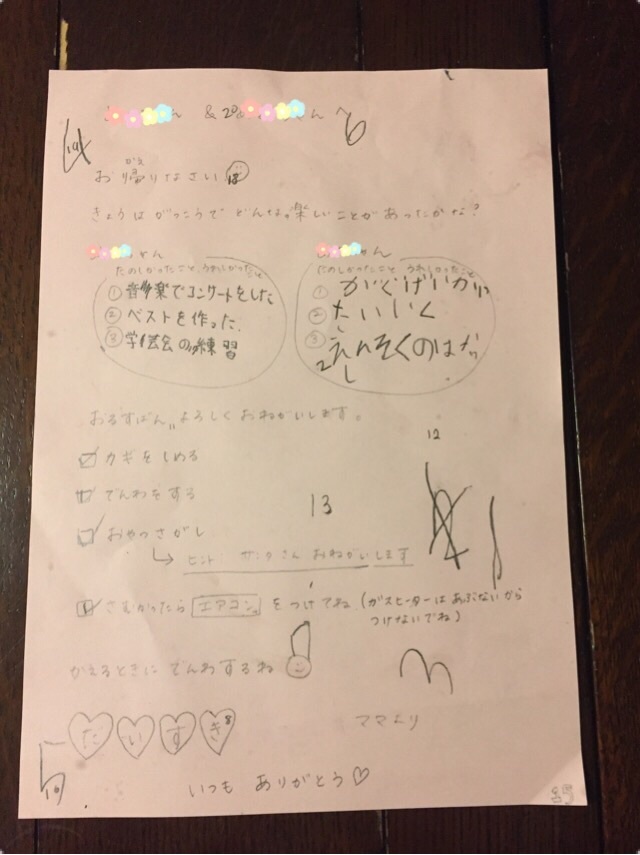 へ
お帰りなさい
かえ
は
きょうは がっこうで どんな楽しいことがあったかな?
ちゃん
たのしかったこと うれしかったこと
① 音楽でコンサートをした
② ベストを作った
③ 学芸会の練習
ちゃん
たのしかったこと うれしかったこと
①
② たいいく
③ えんそくのはなし
おるすばん、よろしく おねがいします。
カギをしめる
でんわをする
おやつさがし
→ ヒント: サンタさん おねがいします
さむかったら エアコン をつけてね (ガスヒーターは あぶないから
つけないでね)
12
13
かえるときに でんわするね
だいすき
ママより
いつも ありがとう♡